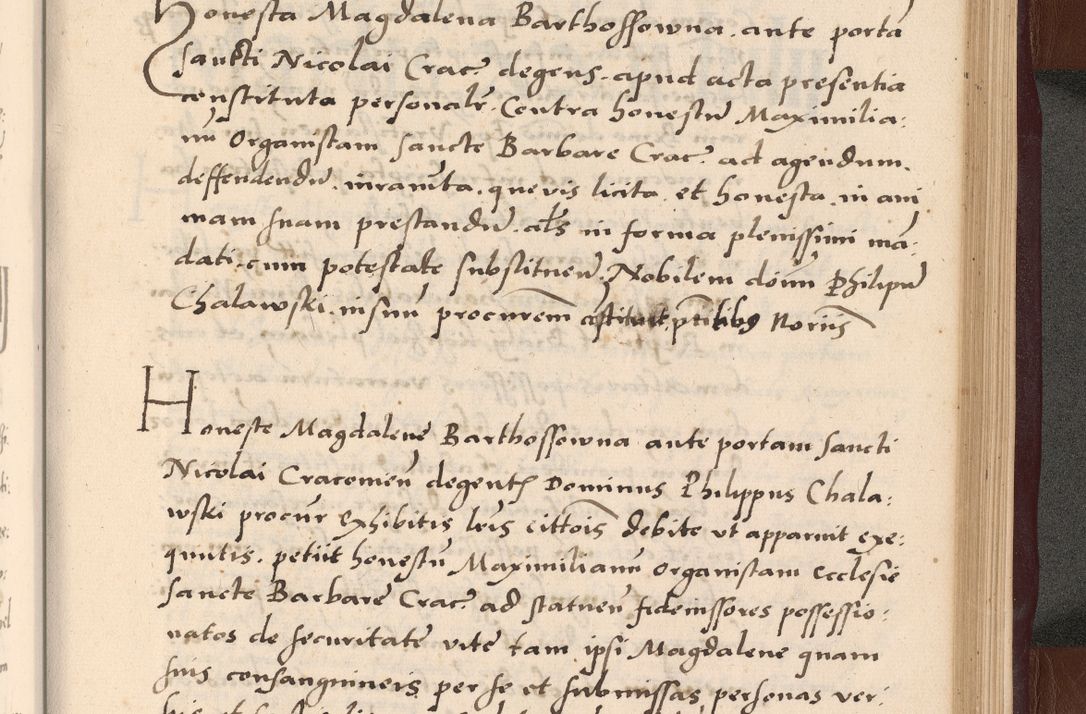 Honesta Magdalena Barthossowna ante porta
sancti Nicolai Crac. degens apud acta presentia
constituta personalr. Contra honestū Maximilia:
nū Organistam sancte Barbare Crac. ad agendum
deffendendū iuramta quevis licita et honesta in ani
mam suam prestandū als in forma plenissimi mā:
dati cum potestate substituen. Nobilem dōm Philipū
Chalawski insuū procurem cōstituit pntibus Noriis
Honeste Magdalene Barthossowna ante portam sancti
Nicolai Cracovien degent Dominus Philippus Chala:
wski procur exhibitis lris cittois debite ut apparuit exe:
quutis. petiit honestū Maximilianū organistam ecclesie
sancte Barbare Crac. ad statuen fideiussores possessio:
natos de securitate vite tam ipsi Magdalene quam
suis consanguineis per se et submissas personas ver: